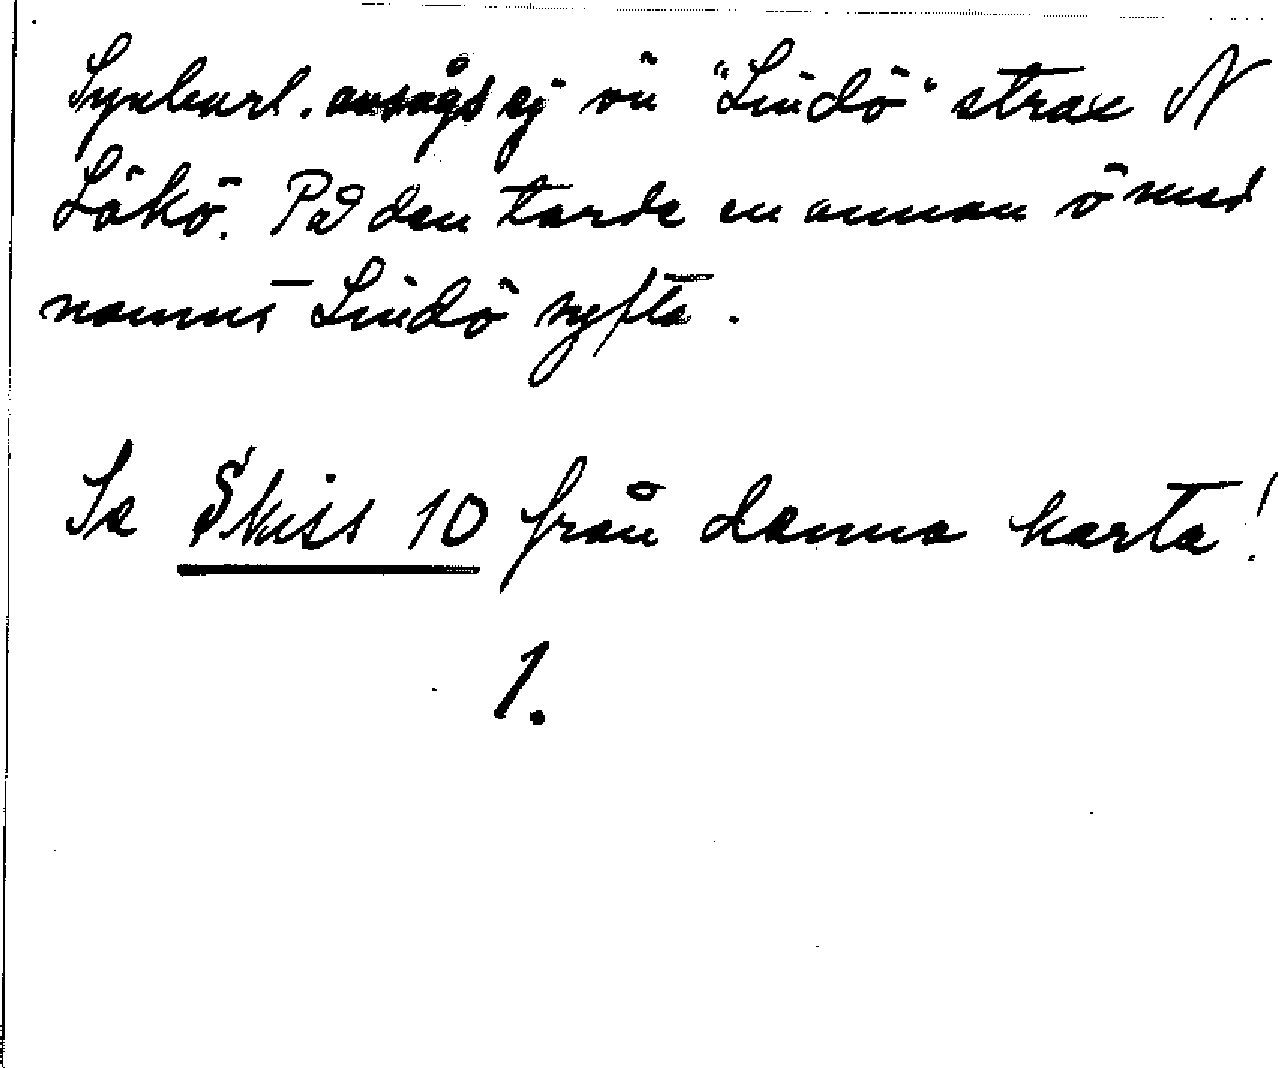 Synbarl. avsågs ej vii "Lindö" strax N
Lökö. På den torde en annan ö med
namnet Lindö syfta.
Se Skiss 10 från denna karta!
1.